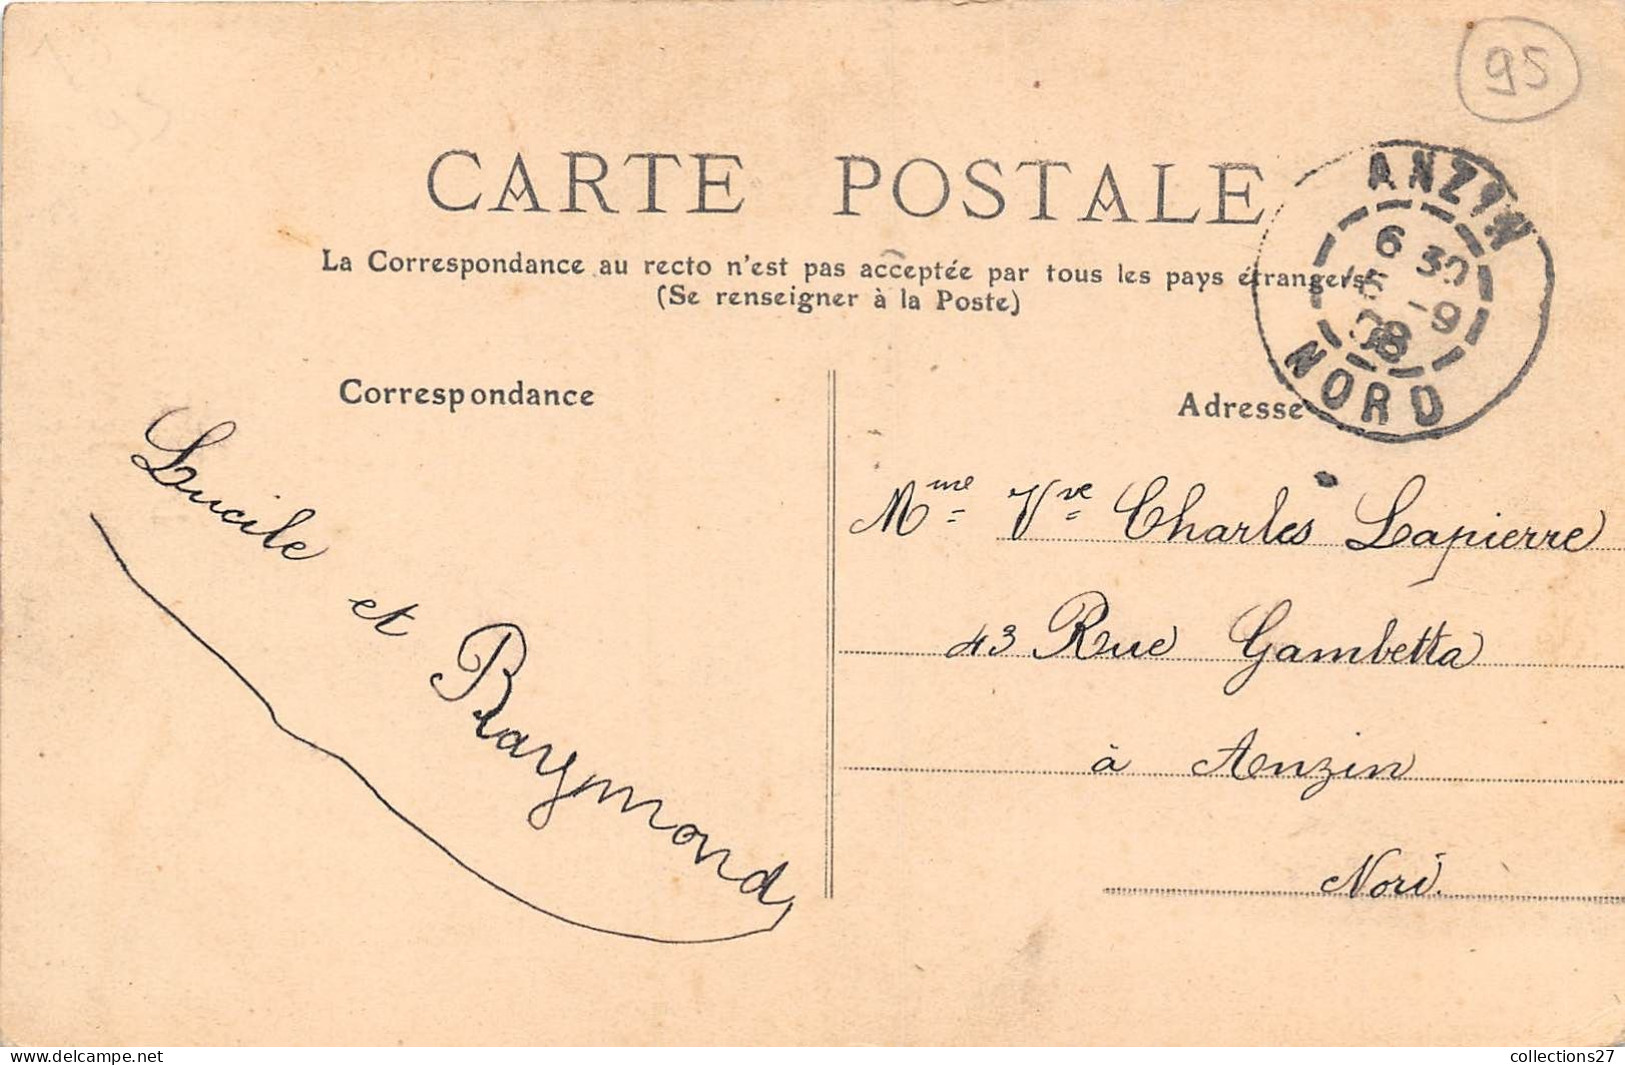 95
CARTE POSTALE
La Correspondance au recto n'est pas acceptée par tous les pays étrangers
(Se renseigner à la Poste)
ANZIN
6 30
5 -9
08
NORD
Correspondance
Adresse
Lucile et Raymond
Mme Vve Charles Lapierre
43 Rue Gambetta
à Anzin
Nord.
collections27